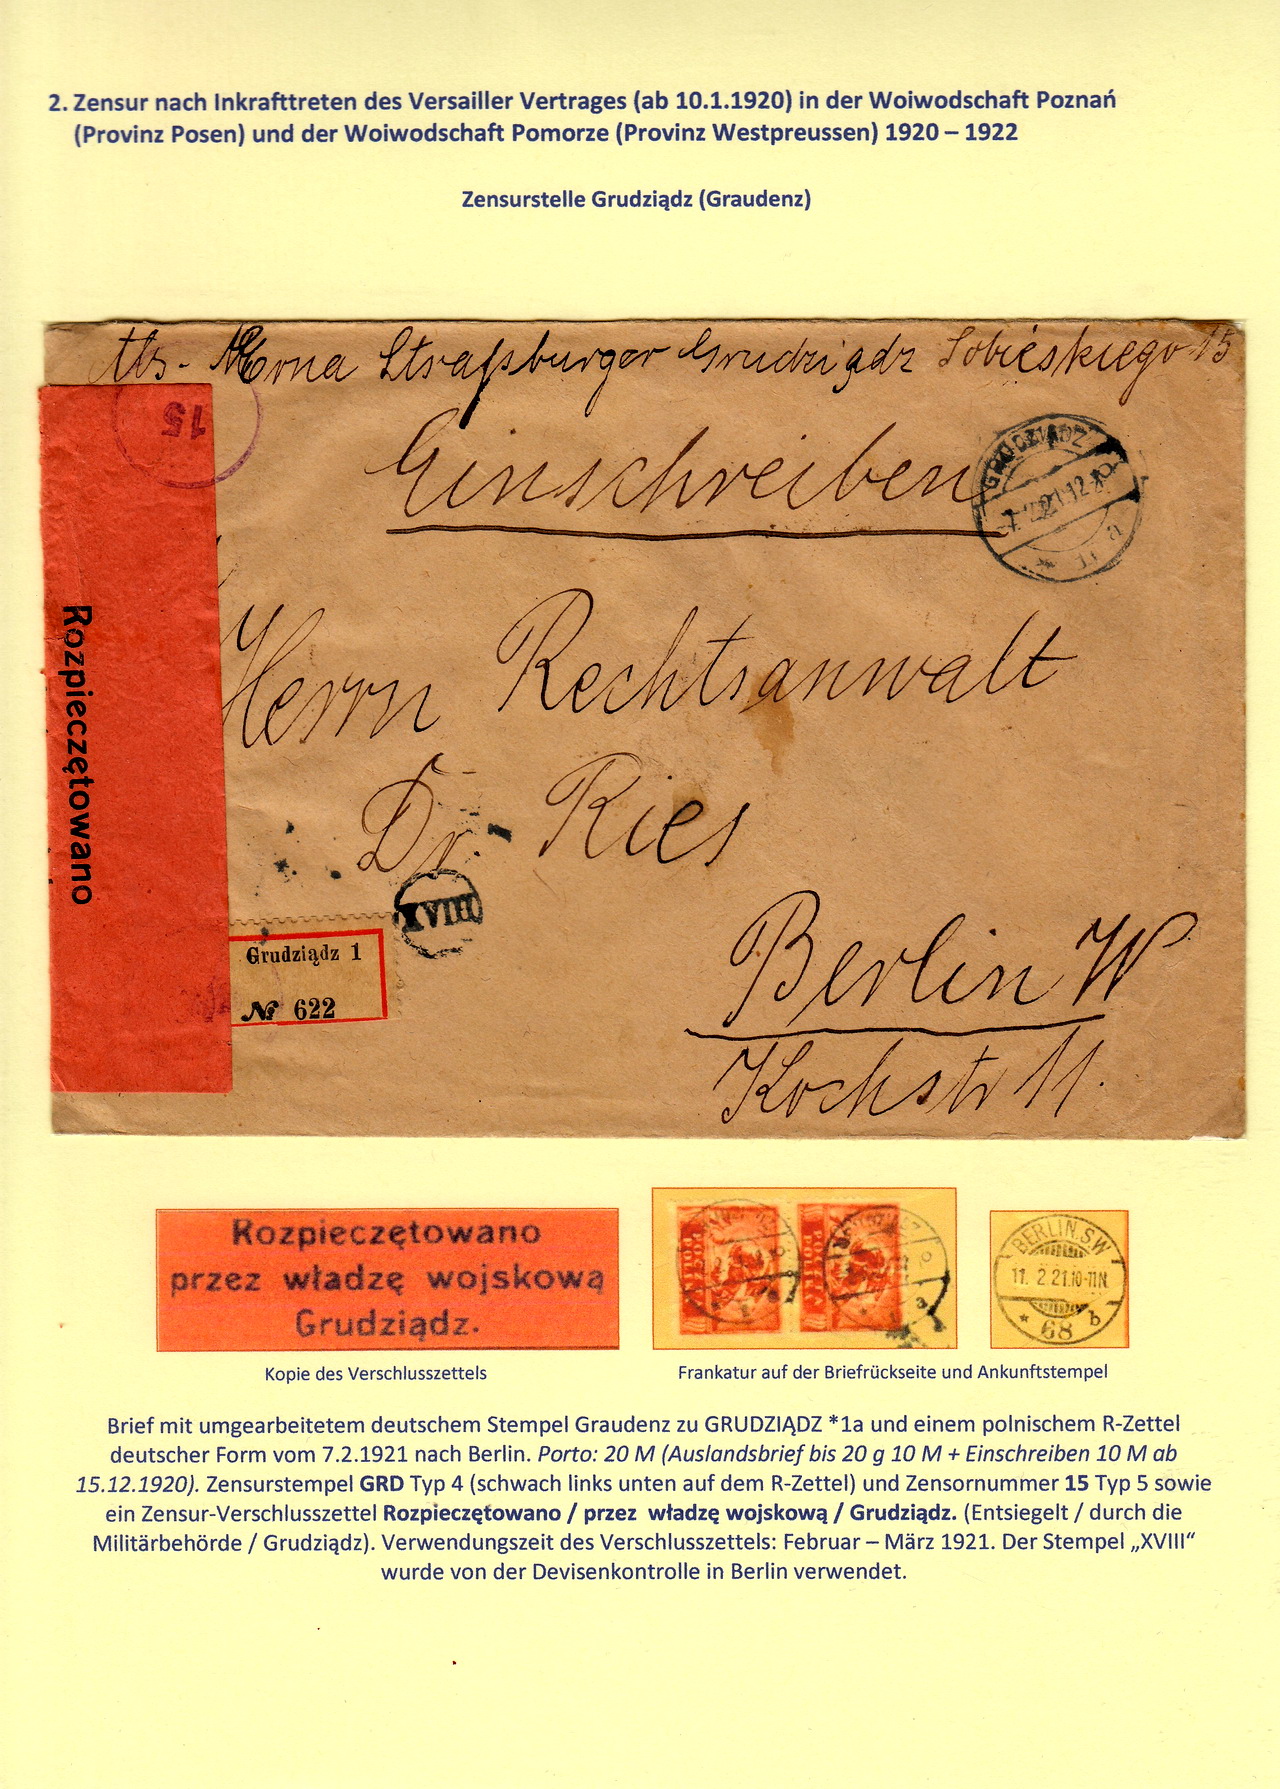 2. Zensur nach Inkrafttreten des Versailler Vertrages (ab 10.1.1920) in der Woiwodschaft Poznań
(Provinz Posen) und der Woiwodschaft Pomorze (Provinz Westpreussen) 1920 – 1922
Zensurstelle Grudziądz (Graudenz)
Abs. Erna Straßburger Grudziądz Sobieskiego 15
15
Einschreiben
GRUDZIĄDZ
Rozpieczętowano
Herrn Rechtsanwalt
Dr. Ries
XVIII
Grudziądz 1
№ 622
Berlin W
Kochstr 11.
Rozpieczętowano
przez władzę wojskową
Grudziądz.
BERLIN.SW
11. 2.21.10-11N.
* 68 b
Kopie des Verschlusszettels
Frankatur auf der Briefrückseite und Ankunftstempel
Brief mit umgearbeitetem deutschem Stempel Graudenz zu GRUDZIĄDZ *1a und einem polnischem R-Zettel
deutscher Form vom 7.2.1921 nach Berlin. Porto: 20 M (Auslandsbrief bis 20 g 10 M + Einschreiben 10 M ab
15.12.1920). Zensurstempel GRD Typ 4 (schwach links unten auf dem R-Zettel) und Zensornummer 15 Typ 5 sowie
ein Zensur-Verschlusszettel Rozpieczętowano / przez władzę wojskową / Grudziądz. (Entsiegelt / durch die
Militärbehörde / Grudziądz). Verwendungszeit des Verschlusszettels: Februar – März 1921. Der Stempel „XVIII“
wurde von der Devisenkontrolle in Berlin verwendet.